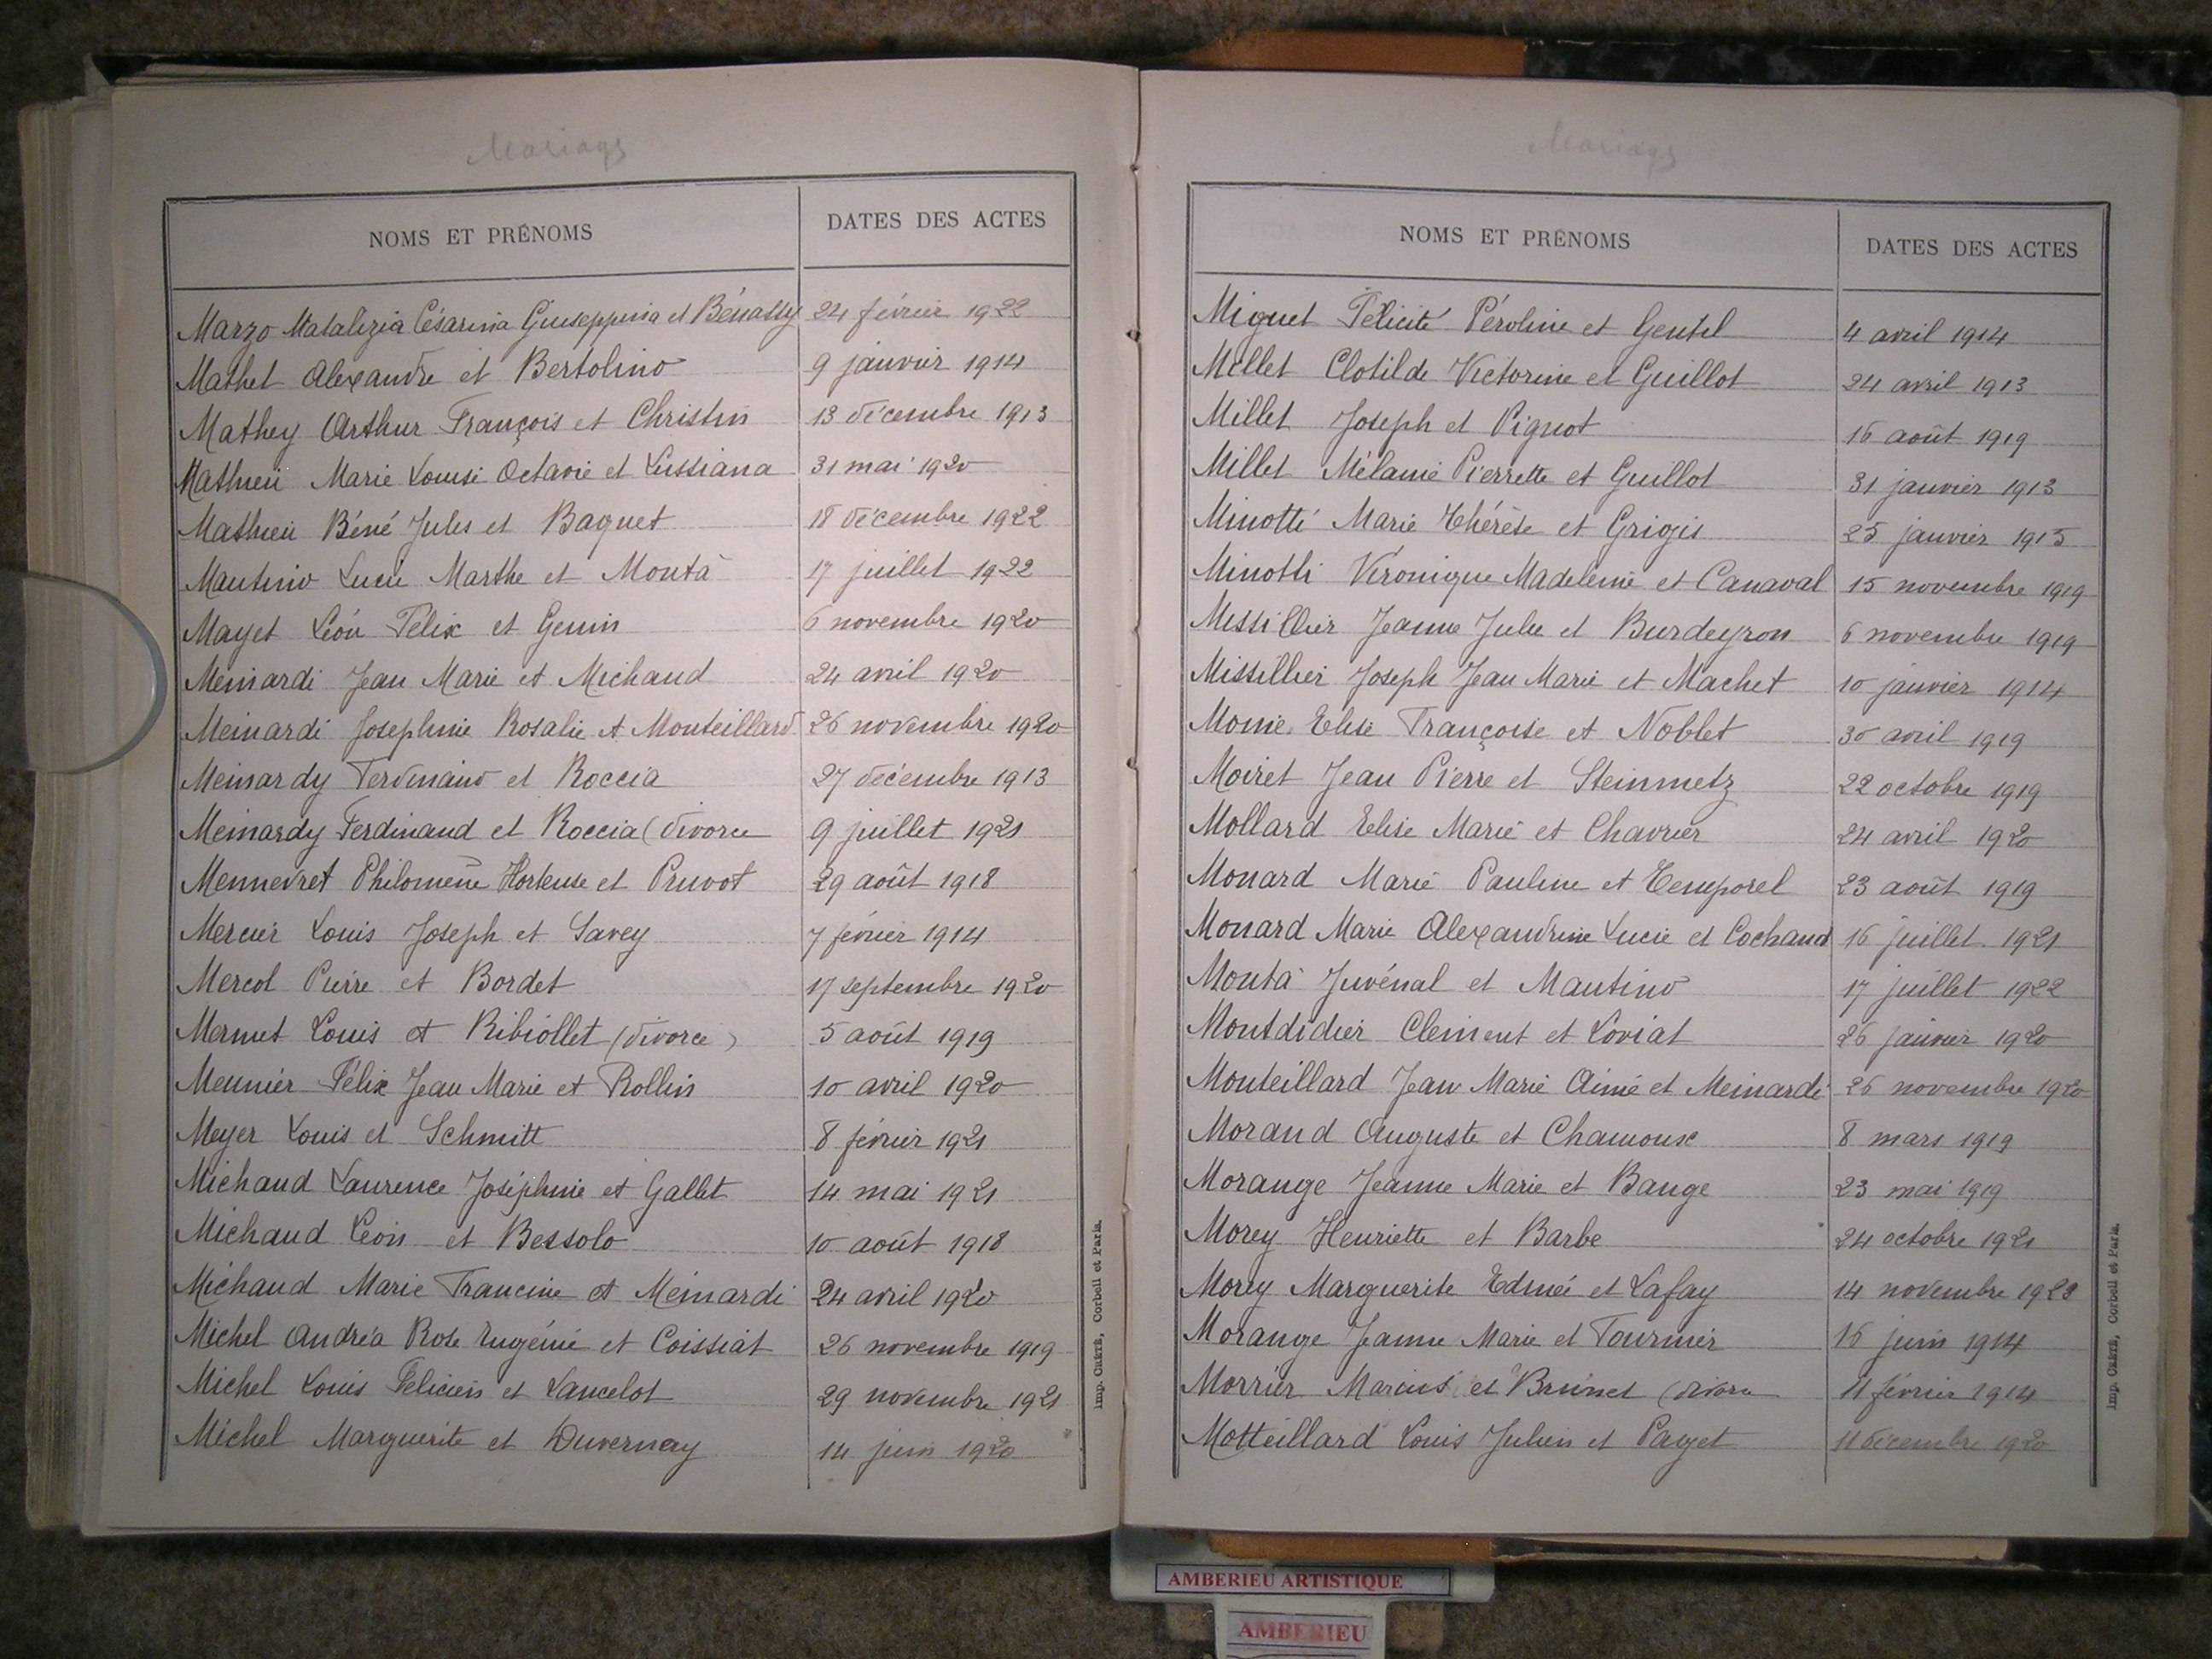 Mariages
NOMS ET PRÉNOMS
DATES DES ACTES
Marzo Matalizia Césarina Giuseppina et Bénassy 24 février 1922
Mathet Alexandre et Bertolino 9 janvier 1914
Mathey Arthur François et Christin 13 décembre 1913
Mathieu Marie Louise Octavie et Lussiana 31 mai 1920
Mathieu Béné Jules et Baquet 18 décembre 1922
Mautino Lucie Marthe et Montà 17 juillet 1922
Mayet Léon Félix et Genin 6 novembre 1920
Meinardi Jean Marie et Michaud 24 avril 1920
Meinardi Josephine Rosalie et Monteillard 26 novembre 1920
Meinardy Ferdinand et Roccia 27 décembre 1913
Meinardy Ferdinand et Roccia (divorce 9 juillet 1921
Mennevret Philomène Hortense et Pruvot 29 août 1918
Mercier Louis Joseph et Savey 7 février 1914
Mercol Pierre et Bordet 17 septembre 1920
Mermet Louis et Ribiollet (divorce) 5 août 1919
Meunier Félix Jean Marie et Rollin 10 avril 1920
Meyer Louis et Schmitt 8 février 1921
Michaud Laurence Joséphine et Gallet 14 mai 1921
Michaud Léon et Bessolo 10 août 1918
Michaud Marie Francine et Meinardi 24 avril 1920
Michel Andréa Rose Eugénie et Coissiat 26 novembre 1919
Michel Louis Félicien et Lancelot 29 novembre 1921
Michel Marguerite et Duvernay 14 juin 1920
Imp. Crété, Corbeil et Paris.
Mariages
NOMS ET PRÉNOMS
DATES DES ACTES
Miguet Félicité Péroline et Gentil 4 avril 1914
Millet Clotilde Victorine et Guillot 24 avril 1913
Millet Joseph et Pignot 16 août 1919
Millet Mélanie Pierrette et Guillot 31 janvier 1913
Minotti Marie Thérèse et Grigis 25 janvier 1915
Minotti Véronique Madeleine et Canaval 15 novembre 1919
Missillier Jeanne Julie et Burdeyron 6 novembre 1919
Missillier Joseph Jean Marie et Machet 10 janvier 1914
Moine Elise Françoise et Noblet 30 avril 1919
Moiret Jean Pierre et Steinmetz 22 octobre 1919
Mollard Elise Marie et Chavrier 24 avril 1920
Monard Marie Pauline et Temporel 23 août 1919
Monard Marie Alexandrine Lucie et Cochaud 16 juillet 1921
Montà Juvénal et Mautino 17 juillet 1922
Montdidier Clement et Loviat 26 janvier 1920
Monteillard Jean Marie Aimé et Meinardi 26 novembre 1920
Morand Auguste et Chamoux 8 mars 1919
Morange Jeanne Marie et Bauge 23 mai 1919
Morey Henriette et Barbe 24 octobre 1921
Morey Marguerite Edmée et Lafay 14 novembre 1923
Morange Jeanne Marie et Tournier 16 juin 1914
Morrier Marius et Brunet (divorce 11 février 1914
Motteillard Louis Julien et Paget 11 décembre 1920
Imp. Crété, Corbeil et Paris.
AMBERIEU ARTISTIQUE
AMBERIEU